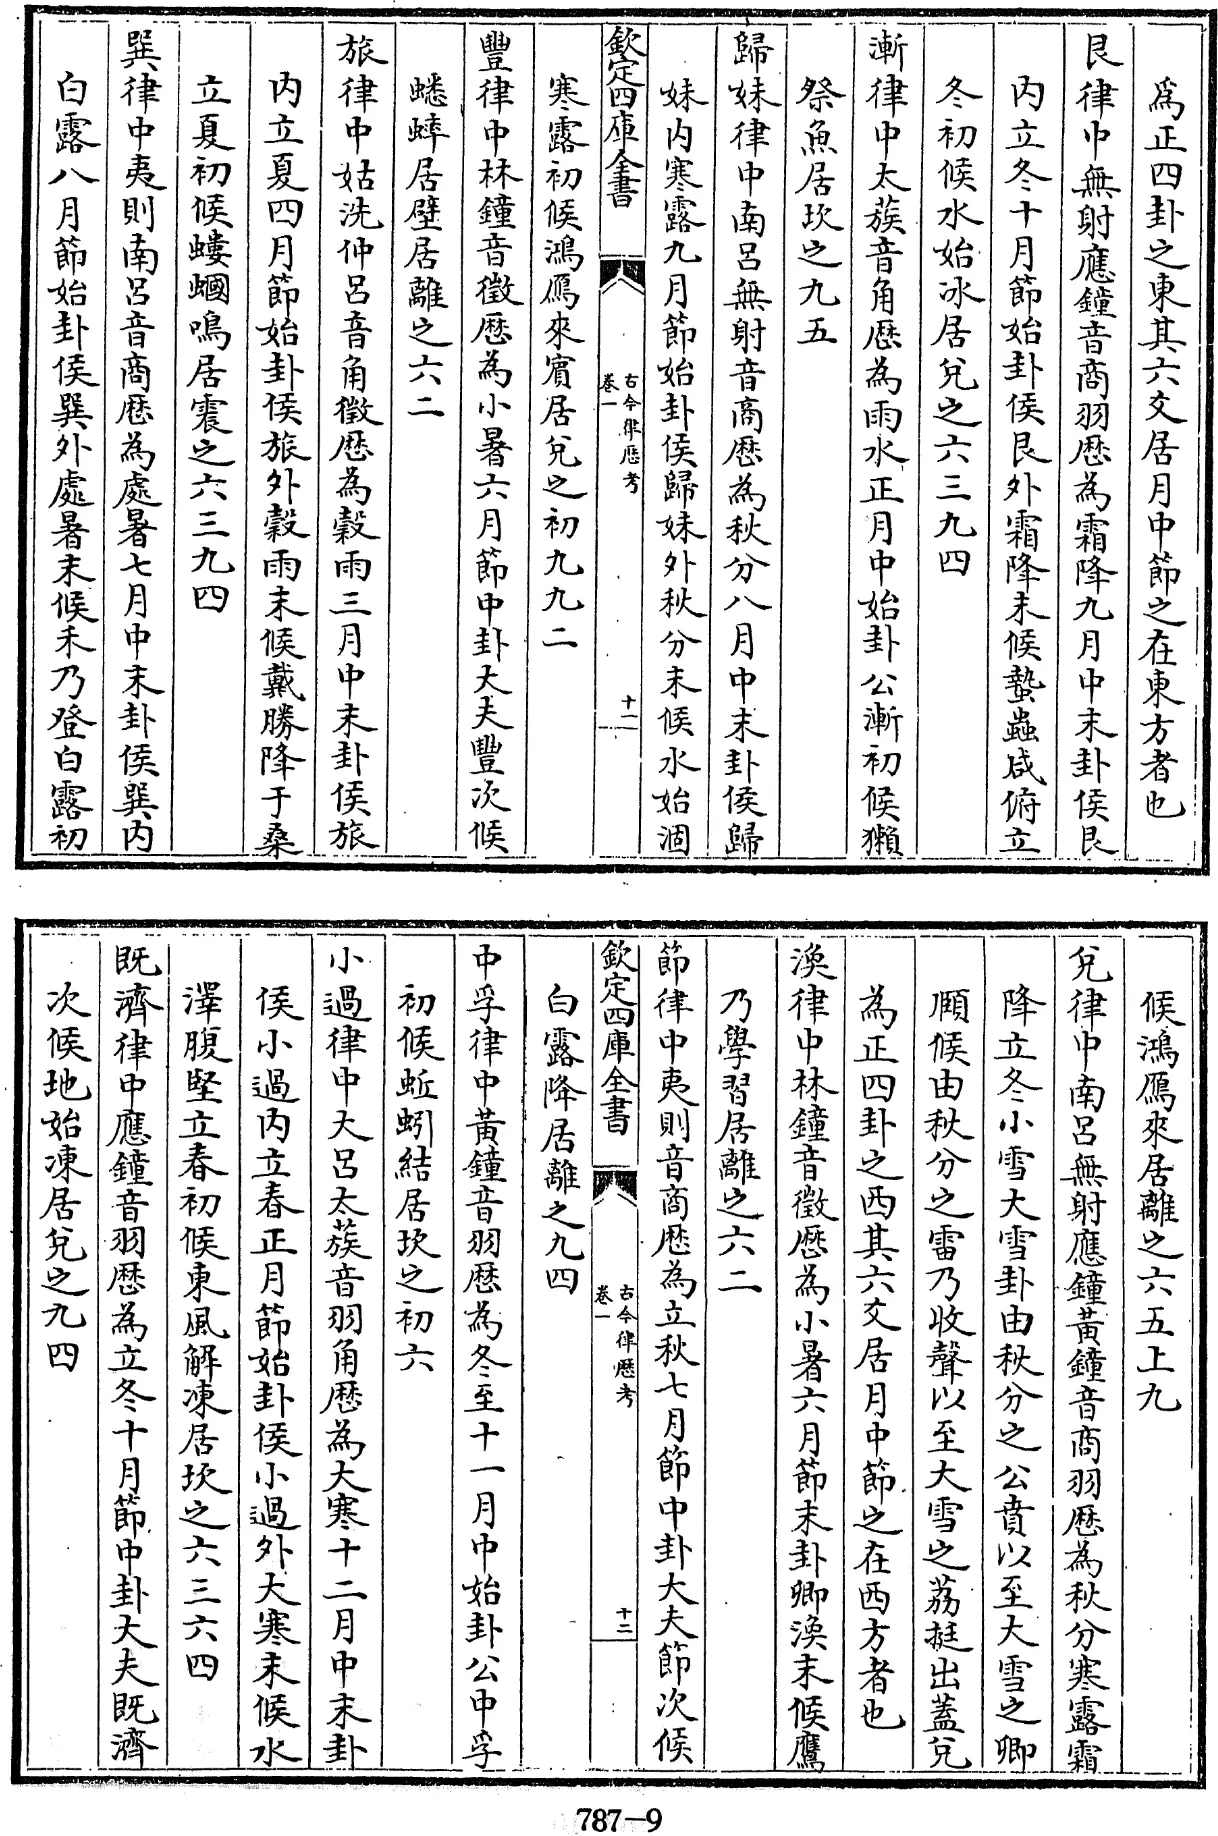 爲正四卦之東其六爻居月中節之在東方者也
艮律中無射應鐘音商羽厯為霜降九月中末卦侯艮
内立冬十月節始卦侯艮外霜降末候蟄蟲咸俯立
冬初候水始冰居兌之六三九四
漸律中太蔟音角厯為雨水正月中始卦公漸初候獺
祭魚居坎之九五
歸妹律中南呂無射音商厯為秋分八月中末卦侯歸
妹内寒露九月節始卦侯歸妹外秋分末候水始涸
欽定四庫全書
古今律厯考
卷一
十一
寒露初候鴻鴈來賓居兌之初九九二
豐律中林鐘音徵厯為小暑六月節中卦大夫豐次候
蟋蟀居壁居離之六二
旅律中姑洗仲呂音角徵厯為穀雨三月中末卦侯旅
内立夏四月節始卦侯旅外穀雨末候戴勝降于桑
立夏初候螻蟈鳴居震之六三九四
巽律中夷則南呂音商厯為處暑七月中末卦侯巽内
白露八月節始卦侯巽外處暑末候禾乃登白露初
候鴻鴈來居離之六五上九
兌律中南呂無射應鐘黃鐘音商羽厯為秋分寒露霜
降立冬小雪大雪卦由秋分之公賁以至大雪之卿
頤候由秋分之雷乃收聲以至大雪之荔挺出蓋兌
為正四卦之西其六爻居月中節之在西方者也
渙律中林鐘音徵厯為小暑六月節末卦卿渙末候鷹
乃學習居離之六二
節律中夷則音商厯為立秋七月節中卦大夫節次候
欽定四庫全書
古今律厯考
卷一
十二
白露降居離之九四
中孚律中黃鐘音羽厯為冬至十一月中始卦公中孚
初候蚯蚓結居坎之初六
小過律中大呂太蔟音羽角厯為大寒十二月中末卦
侯小過内立春正月節始卦侯小過外大寒末候水
澤腹堅立春初候東風解凍居坎之六三六四
既濟律中應鐘音羽厯為立冬十月節中卦大夫既濟
次候地始凍居兌之九四
787-9